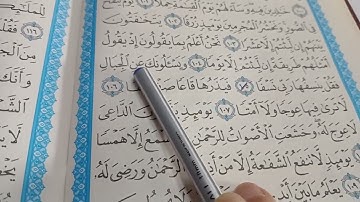 فِي ٱلصُّورِ وَنَحْشُرُ ٱلْمُجْرِمِينَ يَوْمَئِذٍ زُرْقًا ١٠٢ يَتَخَٰفَتُونَ
بَيْنَهُمْ إِن لَّبِثْتُمْ إِلَّا عَشْرًا ١٠٣ نَّحْنُ أَعْلَمُ بِمَا يَقُولُونَ إِذْ يَقُولُ
أَمْثَلُهُمْ طَرِيقَةً إِن لَّبِثْتُمْ إِلَّا يَوْمًا ١٠٤ وَيَسْـَٔلُونَكَ عَنِ ٱلْجِبَالِ
فَقُلْ يَنسِفُهَا رَبِّي نَسْفًا ١٠٥ فَيَذَرُهَا قَاعًا ١٠٦
لَّا تَرَىٰ فِيهَا عِوَجًا وَلَآ أَمْتًا ١٠٧ يَوْمَئِذٍ ٱلدَّاعِىَ
لَا عِوَجَ لَهُۥ وَخَشَعَتِ ٱلْأَصْوَاتُ لِلرَّحْمَٰنِ إِلَّا هَمْسًا
يَوْمَئِذٍ لَّا تَنفَعُ ٱلشَّفَٰعَةُ إِلَّا مَنْ أَذِنَ وَرَضِىَ لَهُۥ
يَعْلَمُ مَا بَيْنَ